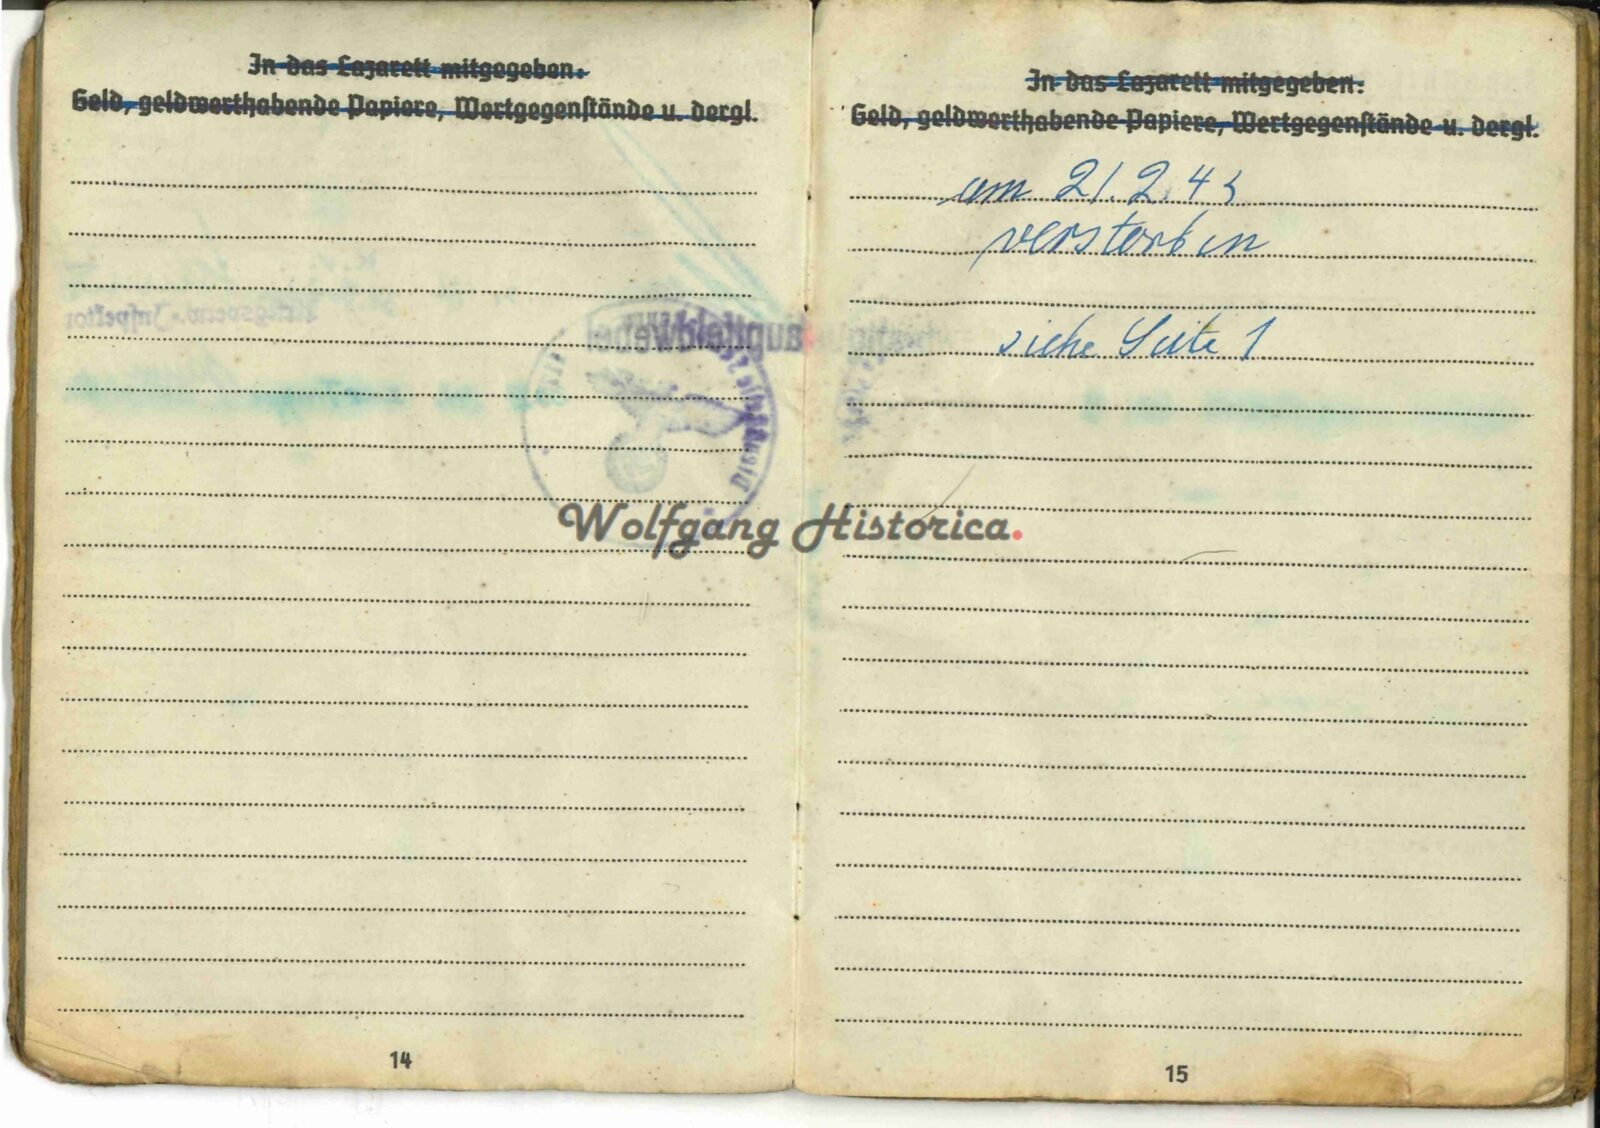 In das Lazarett mitgegeben:
Geld, geldwerthabende Papiere, Wertgegenstände u. dergl.
14
In das Lazarett mitgegeben:
Geld, geldwerthabende Papiere, Wertgegenstände u. dergl.
am 21.2.43
verstorben
siehe Seite 1
15
Hauptfeldwebel
Wolfgang Historica.